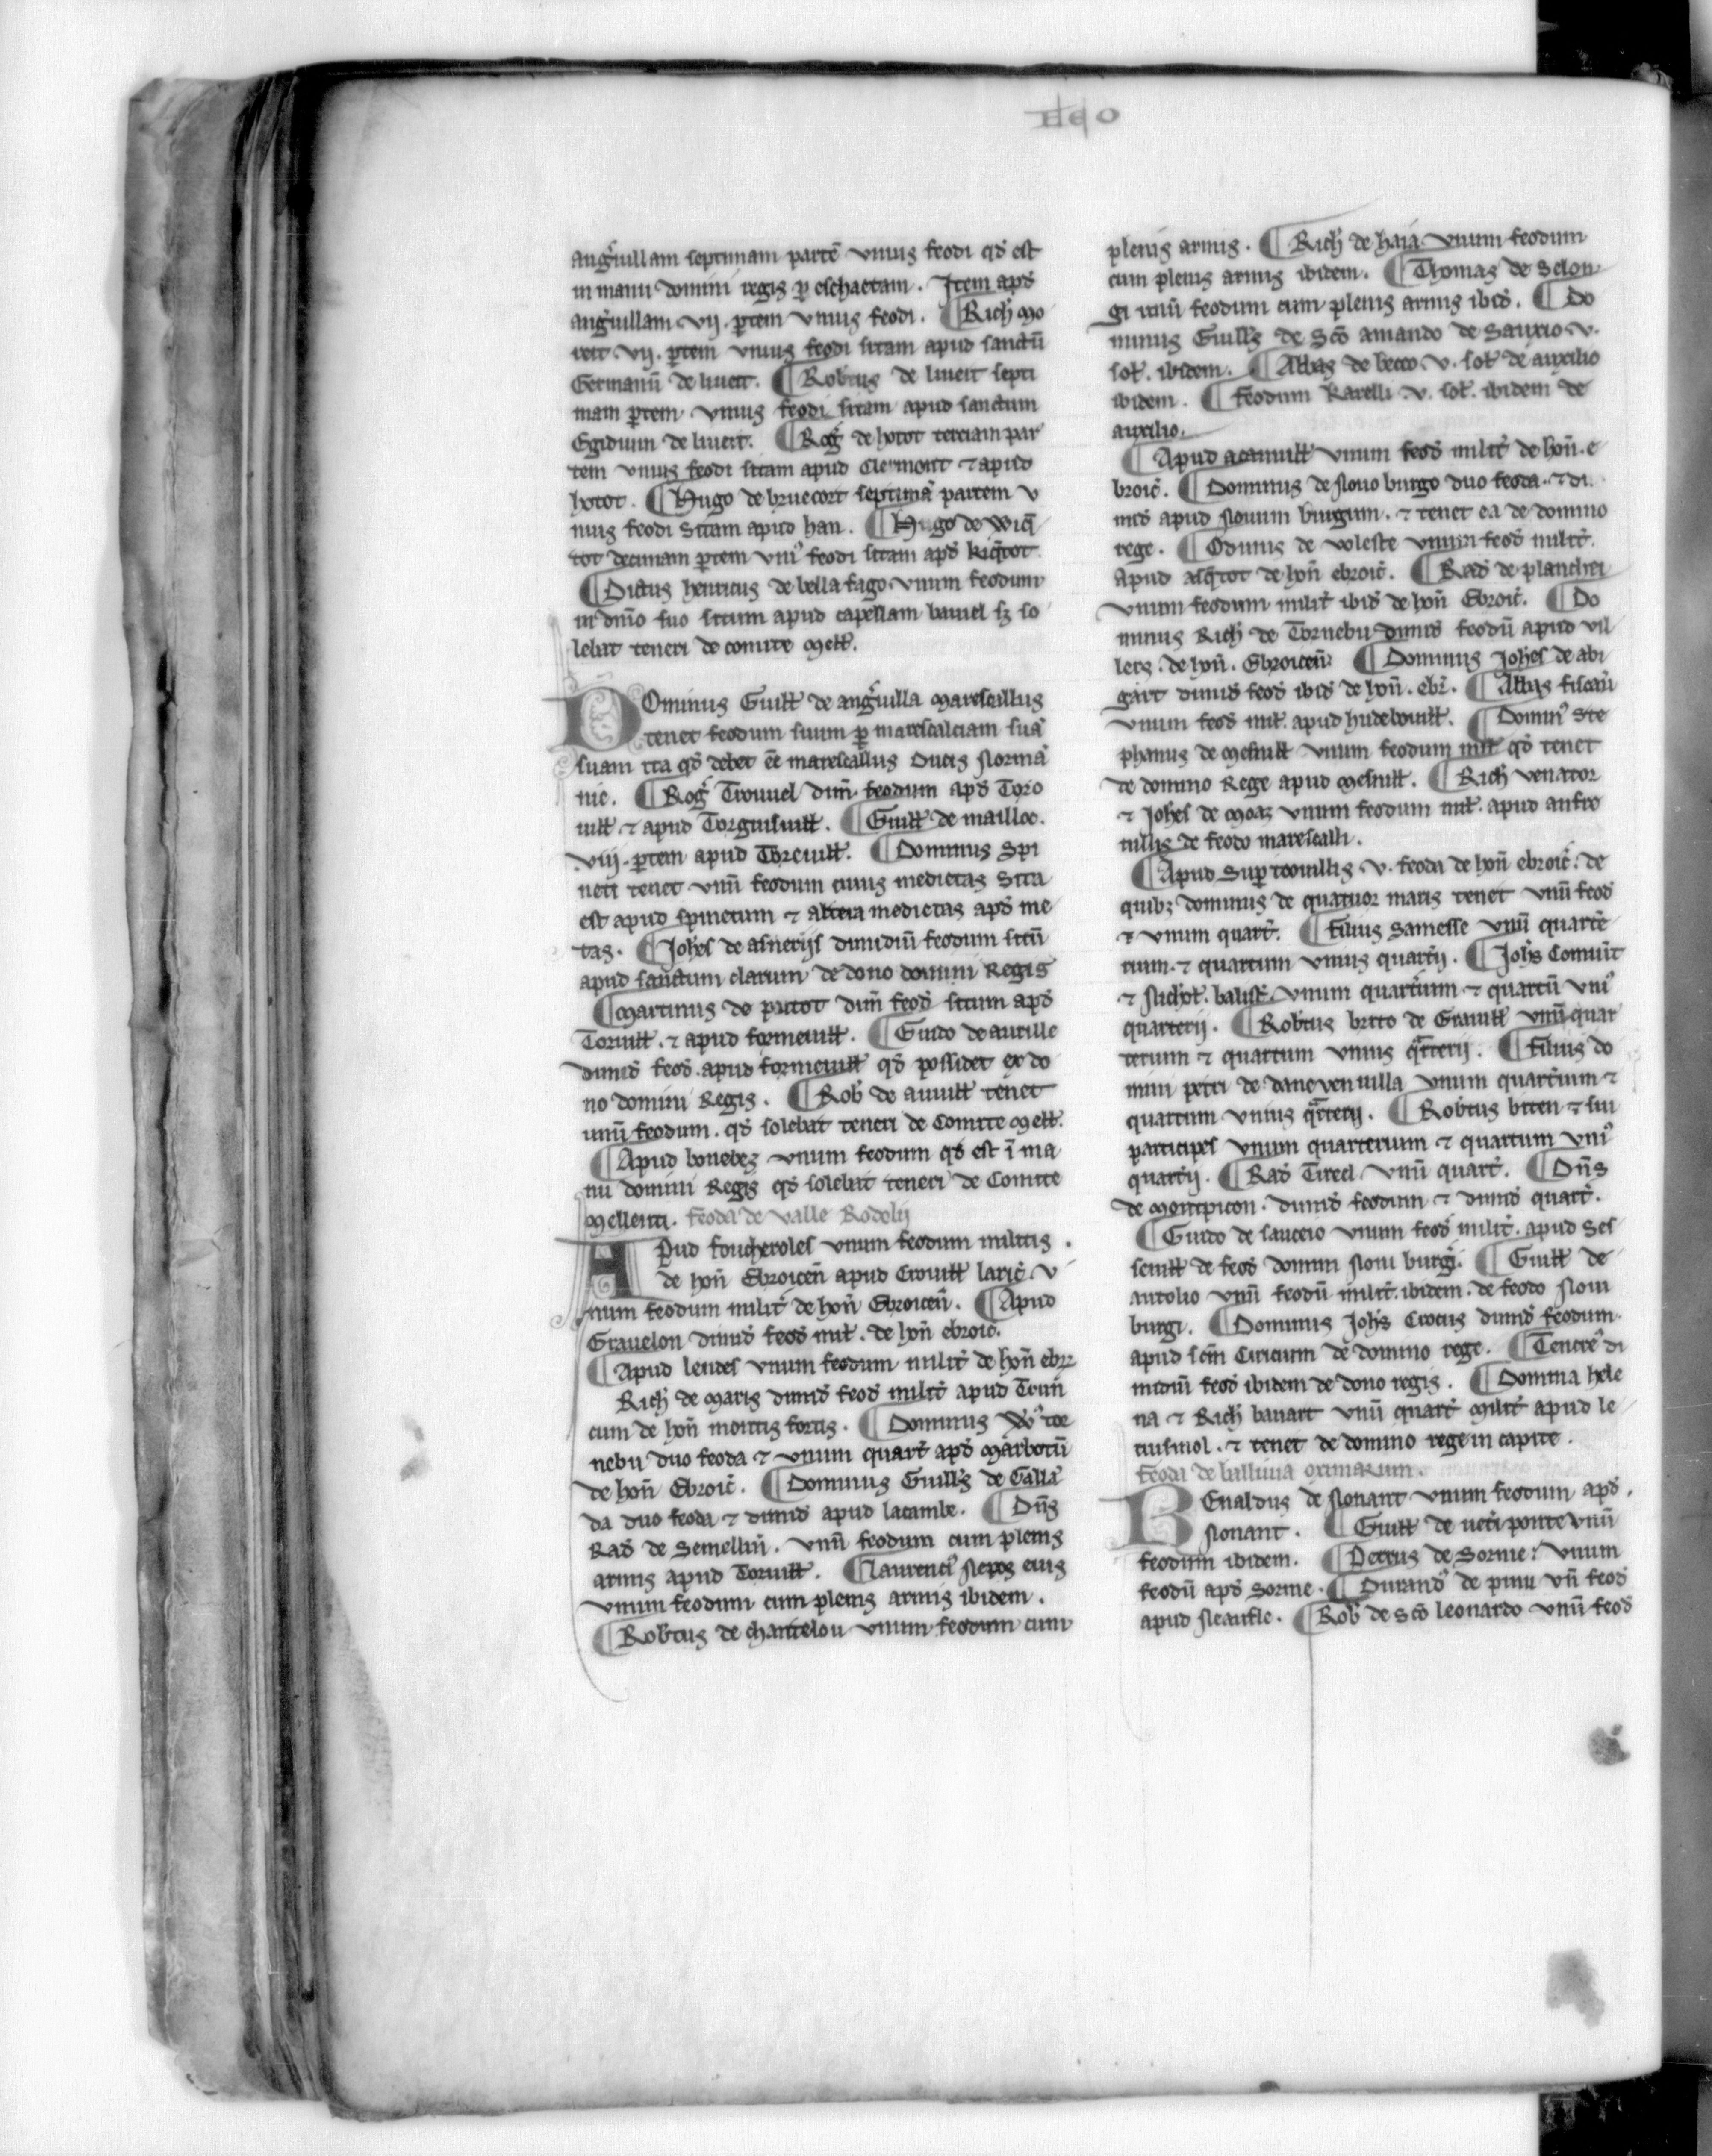 ang̾uillam septimam partē vnius feodi qd̾ est
in manu domini regis ꝑ eschaetam. Item apd̾
ang̾uillam .vij. ꝑtem vnius feodi. ¶ Rich̾ mo
reit vij. ꝑtem vnius feodi sitam apud sanctū
Germanū de liueit. ¶ Rob̾tus de liueit septi
mam ꝑtem vnius feodi sitam apud sanctum
Egidium de liueit. ¶ Rog̾ de hotot terciam par
tem vnius feodi sitam apud Clermont ⁊ apud
hotot. ¶ Hugo de bruecort septimā partem v
nius feodi sitam apud han. ¶ Hugo de Wiq̄
tot decimam ꝑtem vni᾽ feodi sitam apd̾ kiq̄tot.
¶ Dictus henricus de bella fago vnum feodum
in dn̄io suo situm apud capellam bauel sꝫ so
lebat teneri de comite Mell̾.
DOminus Guill̾ de ang̾uilla Marescallus
tenet feodum suum ꝑ marescalciam suā
suam ita qd̾ debet ēē marescallus Ducis Normā
nie. ¶ Rog̾ Trouuel dim̄ feodum apd̾ Toro
uill̾ ⁊ apud Torguisuill̾. ¶ Guill̾ de mailloc.
.viij. ꝑtem apud Toreuill̾. ¶ Dominus Spi
neti tenet vnū feodum cuius medietas sita
est apud spinetum ⁊ altera medietas apd̾ me
tas. ¶ Joh̾es de asnerijs dimidiū feodum sitū
apud sanctum clarum de dono domini Regis
¶ Martinus de putot dim̄ feod̾ situm apd̾
Toruill̾. ⁊ apud formeuill̾. ¶ Guido de autille
dimid̾ feod̾. apud formeuill̾ qd̾ possidet ex do
no domini Regis. ¶ Rob̾ de auuill̾ tenet
unū feodum. qd̾ solebat teneri de Comite Mell̾.
¶ Apud bonebez vnum feodum qd̾ est ī ma
nu domini Regis qd̾ solebat teneri de Comite
Mellenti. feoda de valle Rodolij
APud foucheroles vnum feodum militis.
de hon̄ Ebroicen̄ apud Crouill̾ laric̾. v
num feodum milit̾ de hon̄ Ebroicen̄. ¶ Apud
Grauelon dimid̾ feod̾ mil̾. de hon̄ ebroic̾.
¶ Apud leudes vnum feodum milit̾ de hon̄ ebr̾
Rich̾ de Maris dimid̾ feod̾ milit̾ apud Trun̄
cum de hon̄ montis fortis. ¶ Dominus W̾ tor
nebu duo feoda ⁊ vnum quart̾ apd̾ Marbotū
de hon̄ Ebroic̾. ¶ Dominus Guill̾s de Gallā
da duo feoda ⁊ dimid̾ apud lacamle. ¶ Dn̄s
Rad̾ de Semellin̄. vnū feodum cum plenis
armis apud Toruill̾. ¶ laurenci᾽ Nepos eius
vnum feodum cum plenis armis ibidem.
¶ Rob̾tus de chantelou vnum feodum cum
plenis armis. ¶ Rich̾ de haia vnum feodum
cum plenis armis ibidem. ¶ Thomas de Selon
gi unū feodum cum plenis armis ibid̾. ¶ Do
minus Guill̾s de Sc̄o amando de Sauxio .v.
sol̾. ibidem. ¶ Abbas de becco .v. sol̾ de auxilio
ibidem. ¶ feodum Karelli .v. sol̾. ibidem de
auxilio.
¶ Apud acamuill̾ vnum feod̾ milit̾ de hon̄. e
broic̾. ¶ Dominus de Nouo burgo duo feoda ⁊ di
mid̾ apud Nouum burgum. ⁊ tenet ea de domino
rege. ¶ Odinus de voleste vnum feod̾ milit̾.
apud asq̄tot de hon̄ ebroic̾. ¶ Rad̾ de planchei
vnum feodum milit̾ ibid̾ de hon̄ Ebroic̾. ¶ Do
minus Rich̾ de Tornebu dimid̾ feodū apud vil
lers. de hon̄. Ebroicen̄. ¶ Dominus Joh̾es de abi
gart dimid̾ feod̾ ibid̾ de hon̄. ebr̾. ¶ Abbas fiscan̄
vnum feod̾ mil̾. apud hudebouill̾. ¶ Domin᾽ Ste
phanus de Mesnill̾ vnum feodum mil̾ qd̾ tenet
de domino Rege apud Mesnill̾. ¶ Rich̾ venator
⁊ Joh̾es de Moaz vnum feodum mil̾. apud anfre
uillis de feodo marescalli.
¶ Apud Suꝑ trouillis .v. feoda de hon̄ ebroic̾. de
quibꝫ dominus de quatuor maris tenet vnū feod̾
⁊ vnum quart̾. ¶ filius Samesse vnū quart̾e
rium. ⁊ quartum vnius quart̾ij. ¶ Joh̾s Comuīt
⁊ Nichol̾. balist̾. vnum quart̾ium ⁊ quartū vni᾽
quarterij. ¶ Rob̾tus brito de Grauill̾ vnū quar
terium ⁊ quartum vnius q̄rterij. ¶ filius do
mini petri de daneuenuilla vnum quart̾ium ⁊
quartum vnius q̄rterij. ¶ Rob̾tus biten ⁊ sui
participes vnum quarterium ⁊ quartum vni᾽
quart̾ij. ¶ Rad̾ Tirecl vnū quart̾. ¶ Dn̄s
de Montpicon. dimid̾ feodum ⁊ dimid̾ quart̾.
¶ Guido de sauceio vnum feod̾ milit̾. apud Ses
seuill̾ de feod̾ domini Noui burgi. ¶ Guill̾ de
autolio vnū feodū milit̾. ibidem. de feodo Noui
burgi. ¶ Dominus Joh̾s Crocus dimid̾ feodum.
apud sc̄m Ciricum de domino rege. ¶ Tencre᾽ di
midiū feod̾ ibidem de dono regis. ¶ Domina hele
na ⁊ Rich̾ bauart vnū quart̾ Milit̾ apud le
cuismol. ⁊ tenet de domino rege in capite.
feoda de balliuia oximarum.
REnaldus de Nonant vnum feodum apd̾.
Nonant. ¶ Guill̾ de uet̾i ponte vnū
feodum ibidem. ¶ Petrus de Sornie: vnum
feodū apd̾ Sornie. ¶ Durand᾽ de pinu vn̄ feod̾
apud Neaufle. ¶ Rob̾ de Sc̄o leonardo vnū feod̾